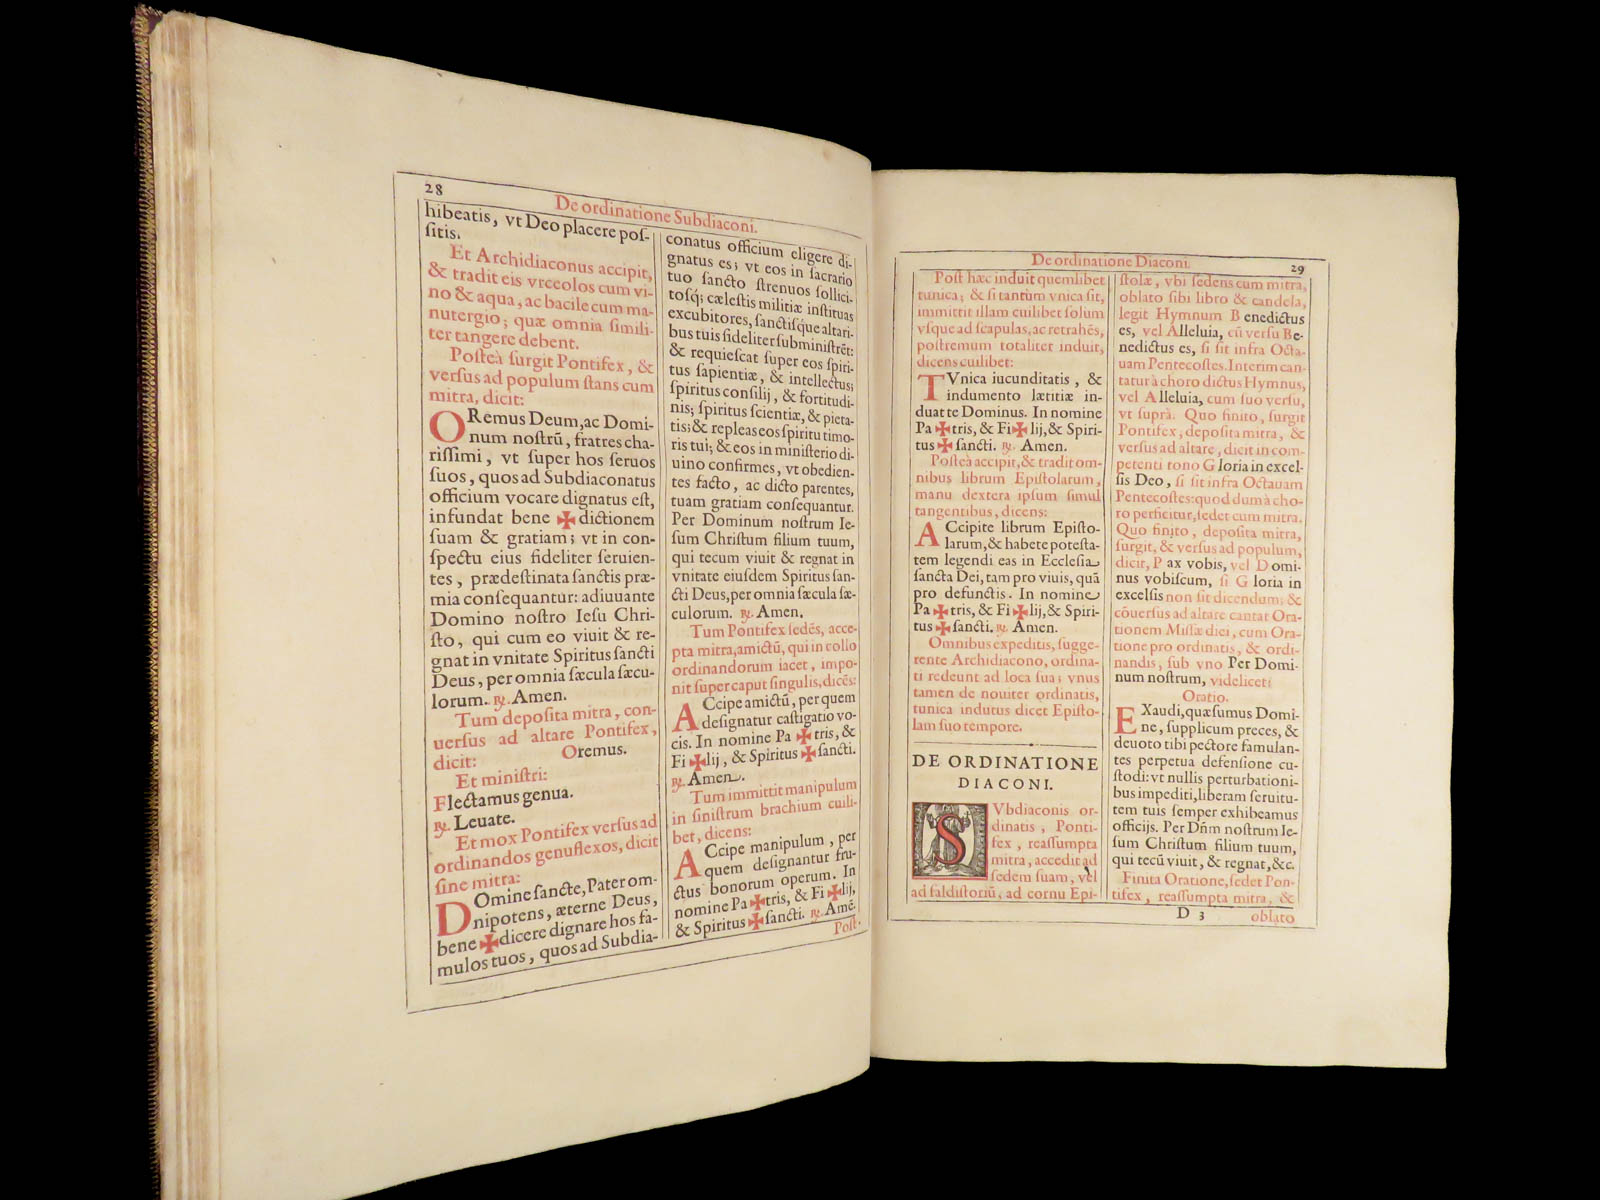 28
De ordinatione Subdiaconi.
hibeatis, vt Deo placere pos-
sitis.
Et Archidiaconus accipit,
& tradit eis vrceolos cum vi-
no & aqua, ac bacile cum ma-
nutergio; quæ omnia simili-
ter tangere debent.
Posteà surgit Pontifex, &
versus ad populum stans cum
mitra, dicit:
ORemus Deum, ac Domi-
num nostrū, fratres cha-
rissimi, vt super hos seruos
suos, quos ad Subdiaconatus
officium vocare dignatus est,
infundat bene ✠ dictionem
suam & gratiam; vt in con-
spectu eius fideliter seruien-
tes, prædestinata sanctis præ-
mia consequantur: adiuuante
Domino nostro Iesu Chri-
sto, qui cum eo viuit & re-
gnat in vnitate Spiritus sancti
Deus, per omnia sæcula sæcu-
lorum. ℟. Amen.
Tum deposita mitra, con-
uersus ad altare Pontifex,
dicit: Oremus.
Et ministri:
Flectamus genua.
℟. Leuate.
Et mox Pontifex versus ad
ordinandos genuflexos, dicit
sine mitra:
DOmine sancte, Pater om-
nipotens, æterne Deus,
bene ✠ dicere dignare hos fa-
mulos tuos, quos ad Subdia-
conatus officium eligere di-
gnatus es; vt eos in sacrario
tuo sancto strenuos sollici-
tosq; cælestis militiæ instituas
excubitores, sanctisque altari-
bus tuis fideliter subministrēt:
& requiescat super eos spiri-
tus sapientiæ, & intellectus;
spiritus consilij, & fortitudi-
nis; spiritus scientiæ, & pieta-
tis; & repleas eos spiritu timo-
ris tui; & eos in ministerio di-
uino confirmes, vt obedien-
tes facto, ac dicto parentes,
tuam gratiam consequantur.
Per Dominum nostrum Ie-
sum Christum filium tuum,
qui tecum viuit & regnat in
vnitate eiusdem Spiritus san-
cti Deus, per omnia sæcula sæ-
culorum. ℟. Amen.
Tum Pontifex sedēs, acce-
pta mitra, amictū, qui in collo
ordinandorum iacet, impo-
nit super caput singulis, dicēs:
ACcipe amictū, per quem
designatur castigatio vo-
cis. In nomine Pa ✠ tris, &
Fi ✠ lij, & Spiritus ✠ sancti.
℟. Amen.
Tum immittit manipulum
in sinistrum brachium cuili-
bet, dicens:
ACcipe manipulum, per
quem designantur fru-
ctus bonorum operum. In
nomine Pa ✠ tris, & Fi ✠ lij,
& Spiritus ✠ sancti. ℟. Amē.
Post.
De ordinatione Diaconi.
29
Post hæc induit quemlibet
tunica; & si tantùm vnica sit,
immittit illam cuilibet solum
vsque ad scapulas, ac retrahēs,
postremum totaliter induit,
dicens cuilibet:
TVnica iucunditatis, &
indumento lætitiæ in-
duat te Dominus. In nomine
Pa ✠ tris, & Fi ✠ lij, & Spiri-
tus ✠ sancti. ℟. Amen.
Posteà accipit, & tradit om-
nibus librum Epistolarum,
manu dextera ipsum simul
tangentibus, dicens:
ACcipite librum Episto-
larum, & habete potesta-
tem legendi eas in Ecclesia
sancta Dei, tam pro viuis, quā
pro defunctis. In nomine
Pa ✠ tris, & Fi ✠ lij, & Spiri-
tus ✠ sancti. ℟. Amen.
Omnibus expeditis, sugge-
rente Archidiacono, ordina-
ti redeunt ad loca sua; vnus
tamen de nouiter ordinatis,
tunica indutus dicet Episto-
lam suo tempore.
DE ORDINATIONE
DIACONI.
SVbdiaconis or-
dinatis, Ponti-
fex, reassumpta
mitra, accedit ad
sedem suam, vel
ad faldistoriū, ad cornu Epi-
stolæ, vbi sedens cum mitra,
oblato sibi libro & candela,
legit Hymnum Benedictus
es, vel Alleluia, cū versu Be-
nedictus es, si sit infra Octa-
uam Pentecostes. Interim can-
tatur à choro dictus Hymnus,
vel Alleluia, cum suo versu,
vt suprà. Quo finito, surgit
Pontifex, deposita mitra, &
versus ad altare, dicit in com-
petenti tono Gloria in excel-
sis Deo, si sit infra Octauam
Pentecostes: quod dum à cho-
ro perficitur, sedet cum mitra.
Quo finito, deposita mitra,
surgit, & versus ad populum,
dicit, Pax vobis, vel Domi-
nus vobiscum, si Gloria in
excelsis non sit dicendum; &
cōuersus ad altare cantat Ora-
tionem Missæ diei, cum Ora-
tione pro ordinatis, & ordi-
nandis, sub vno Per Domi-
num nostrum, videlicet:
Oratio.
EXaudi, quæsumus Domi-
ne, supplicum preces, &
deuoto tibi pectore famulan-
tes perpetua defensione cu-
stodi: vt nullis perturbationi-
bus impediti, liberam seruitu-
tem tuis semper exhibeamus
officijs. Per Dn̄m nostrum Ie-
sum Christum filium tuum,
qui tecū viuit, & regnat, &c.
Finita Oratione, sedet Pon-
tifex, reassumpta mitra, &
D 3
oblato